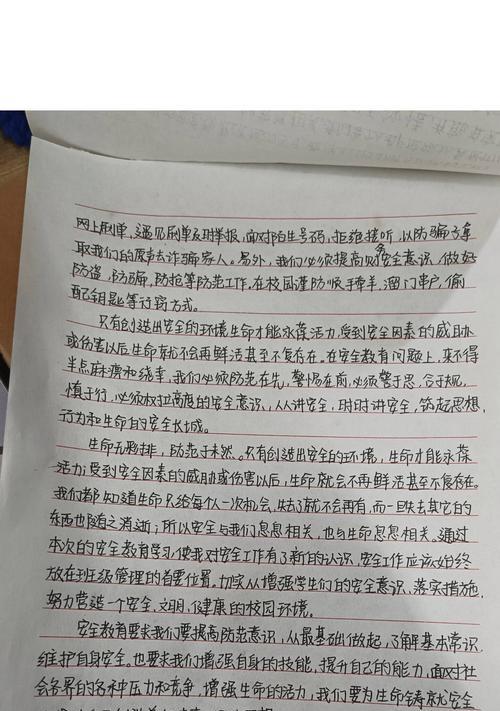 网上刷单，遇见刷单及时举报，面对陌生号码，拒绝接听，以防骗子拿
取我们的原声去诈骗家人。另外，我们必须提高财务安全意识，做好
防盗，防骗，防抢等防范工作，在校园谨防顺手牵羊，溜门串户，偷
配钥匙等行窃方式。
只有创造出安全的环境生命才能永葆活力，受到安全因素的威胁
或伤害以后生命就不会再鲜活甚至不复存在，在安全教育问题上，来不得
半点麻痹和侥幸，我们必须防范在先，警惕在前，必须警于思，合于规，
慎于行，必须树立高度的安全意识，人人讲安全，时时讲安全，筑起思想，
行为和生命的安全长城。
生命无彩排，防范于未然。只有创造出安全的环境，生命才能永葆
活力，受到安全因素的威胁或伤害以后，生命就会不再鲜活甚至不复存在。
我们都知道生命只给每个人一次机会，失去了就不会再有，而一旦失去其它的
东西也随之消逝；所以安全与我们息息相关，也与生命息息相关。通过
本次的安全教育学习，使我对安全工作有了新的认识，安全工作应该始终
放在班级管理的首要位置，切实从增强学生们的安全意识、落实措施，
努力营造一个安全、文明、健康的校园环境。
安全教育要求我们要提高防范意识，从最基础做起，了解基本常识，
维护自身安全。也要求我们增强自身的技能，提升自己的能力，面对社
会各界的各种压力和竞争，增强生命的活力，我们要为生命铸就安全